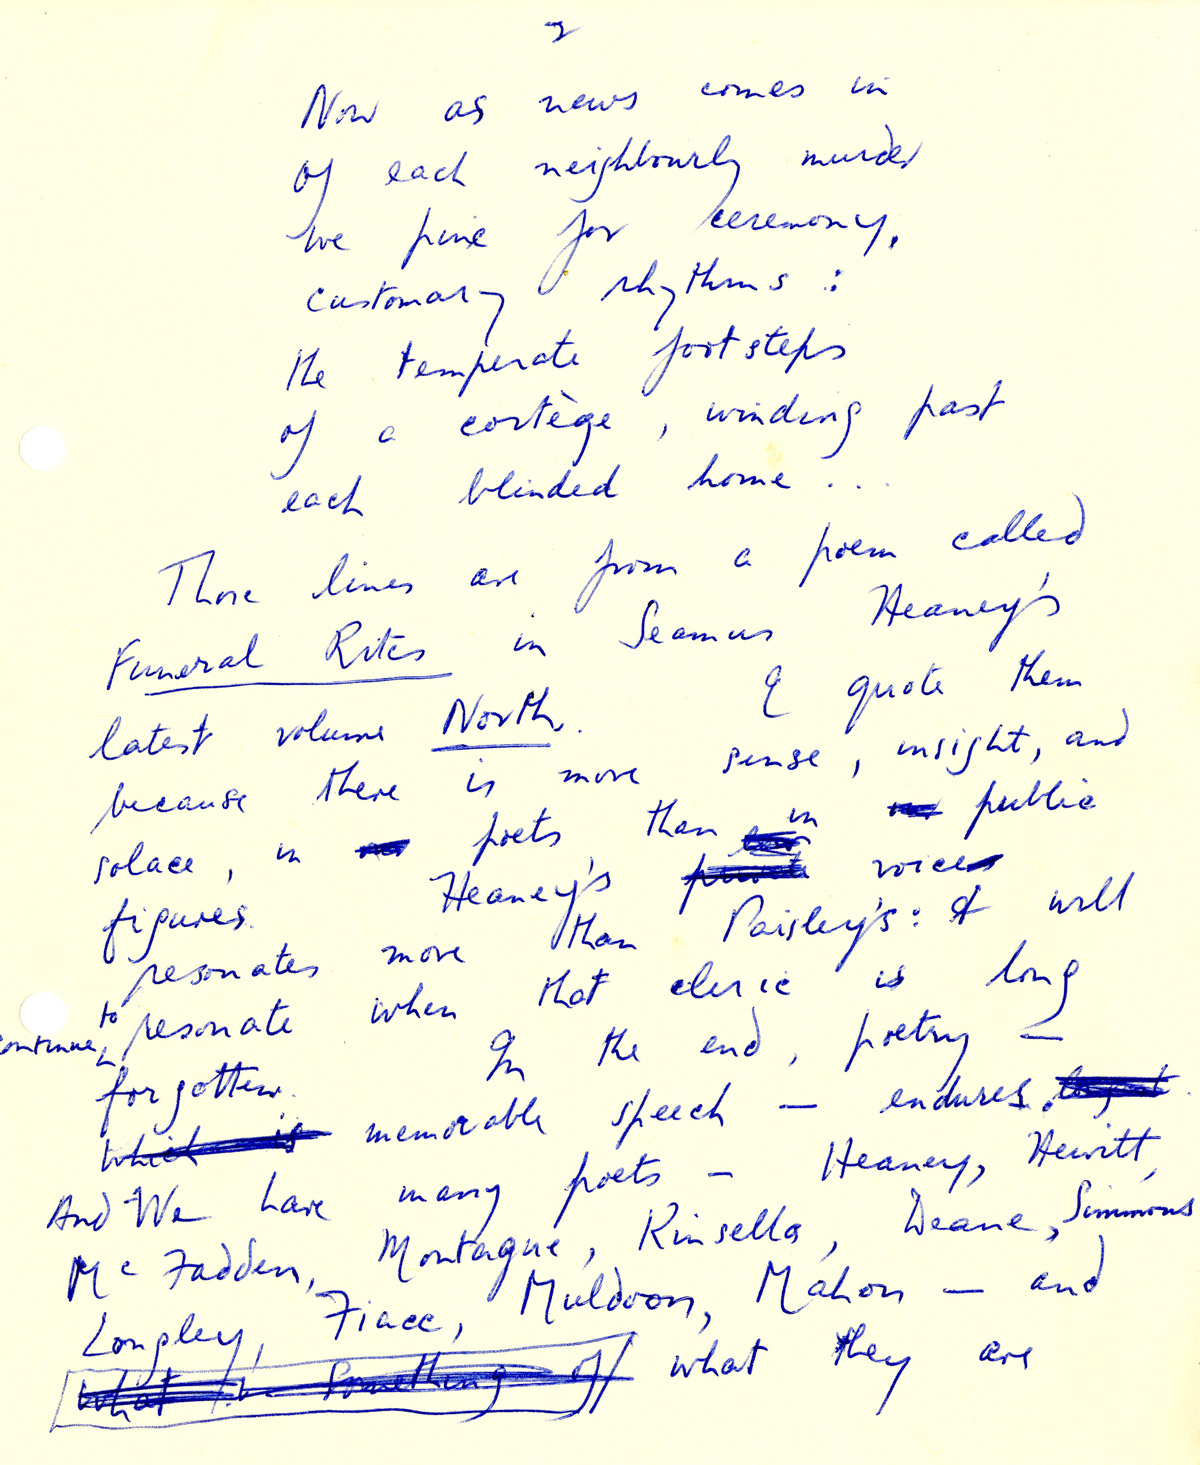 2
Now as news comes in
of each neighbourly murder
we pine for ceremony,
customary rhythms :
the temperate footsteps
of a cortège, winding past
each blinded home ...
Those lines are from a poem called
Funeral Rites in Seamus Heaney's
latest volume North. I quote them
because there is more sense, insight, and
solace, in poets than in public
figures. Heaney's voice
resonates more than Paisley's: it will
continue to resonate when that cleric is long
forgotten. In the end, poetry —
which is memorable speech — endures.
And We have many poets — Heaney, Hewitt,
McFadden, Montague, Kinsella, Deane, Simmons
Longley, Fiacc, Muldoon, Mahon — and
what something of what they are